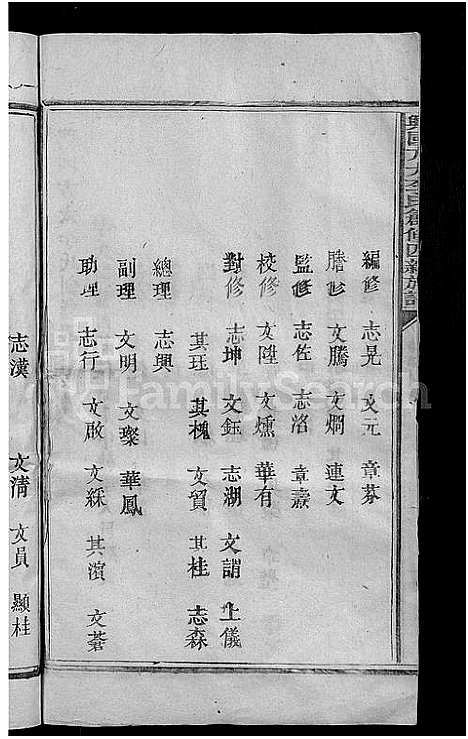 編修 志晃 文元 章芬
謄修 文騰 文燗 連文
監修 志佐 志洺 章燾
校修 文陞 文燻 華有
對修 志坤 文鈺 志湖 文誚 上儀
其珏 其槐 文貿 其桂 志森
總理 志興
副理 文明 文璨 華鳳
助理 志行 文啟 文綵 其濱 文蒼
志漢 文清 文員 顯桂
FamilySearch